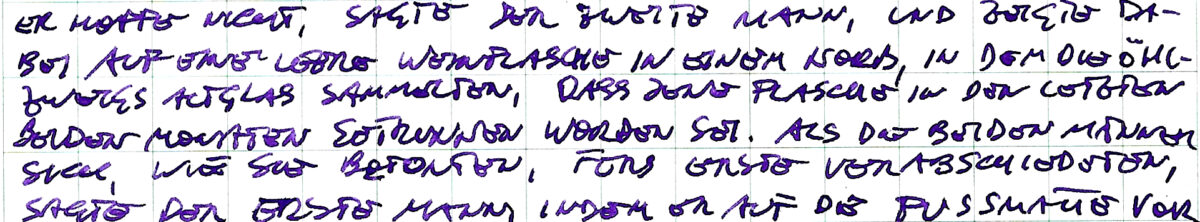 ER HOFFE NICHT, SAGTE DER ZWEITE MANN, UND ZEIGTE DA-
BEI AUF EINE LEERE WEINFLASCHE IN EINEM KORB, IN DEM DIE ÖHL-
ZWEIGS ALTGLAS SAMMELTEN, DASS JENE FLASCHE IN DEN LETZTEN
BEIDEN MONATEN GETRUNKEN WORDEN SEI. ALS DIE BEIDEN MÄNNER
SICH, WIE SIE BETONTEN, FÜRS ERSTE VERABSCHIEDETEN,
SAGTE DER ERSTE MANN, INDEM ER AUF DIE FUSSMATTE VOR